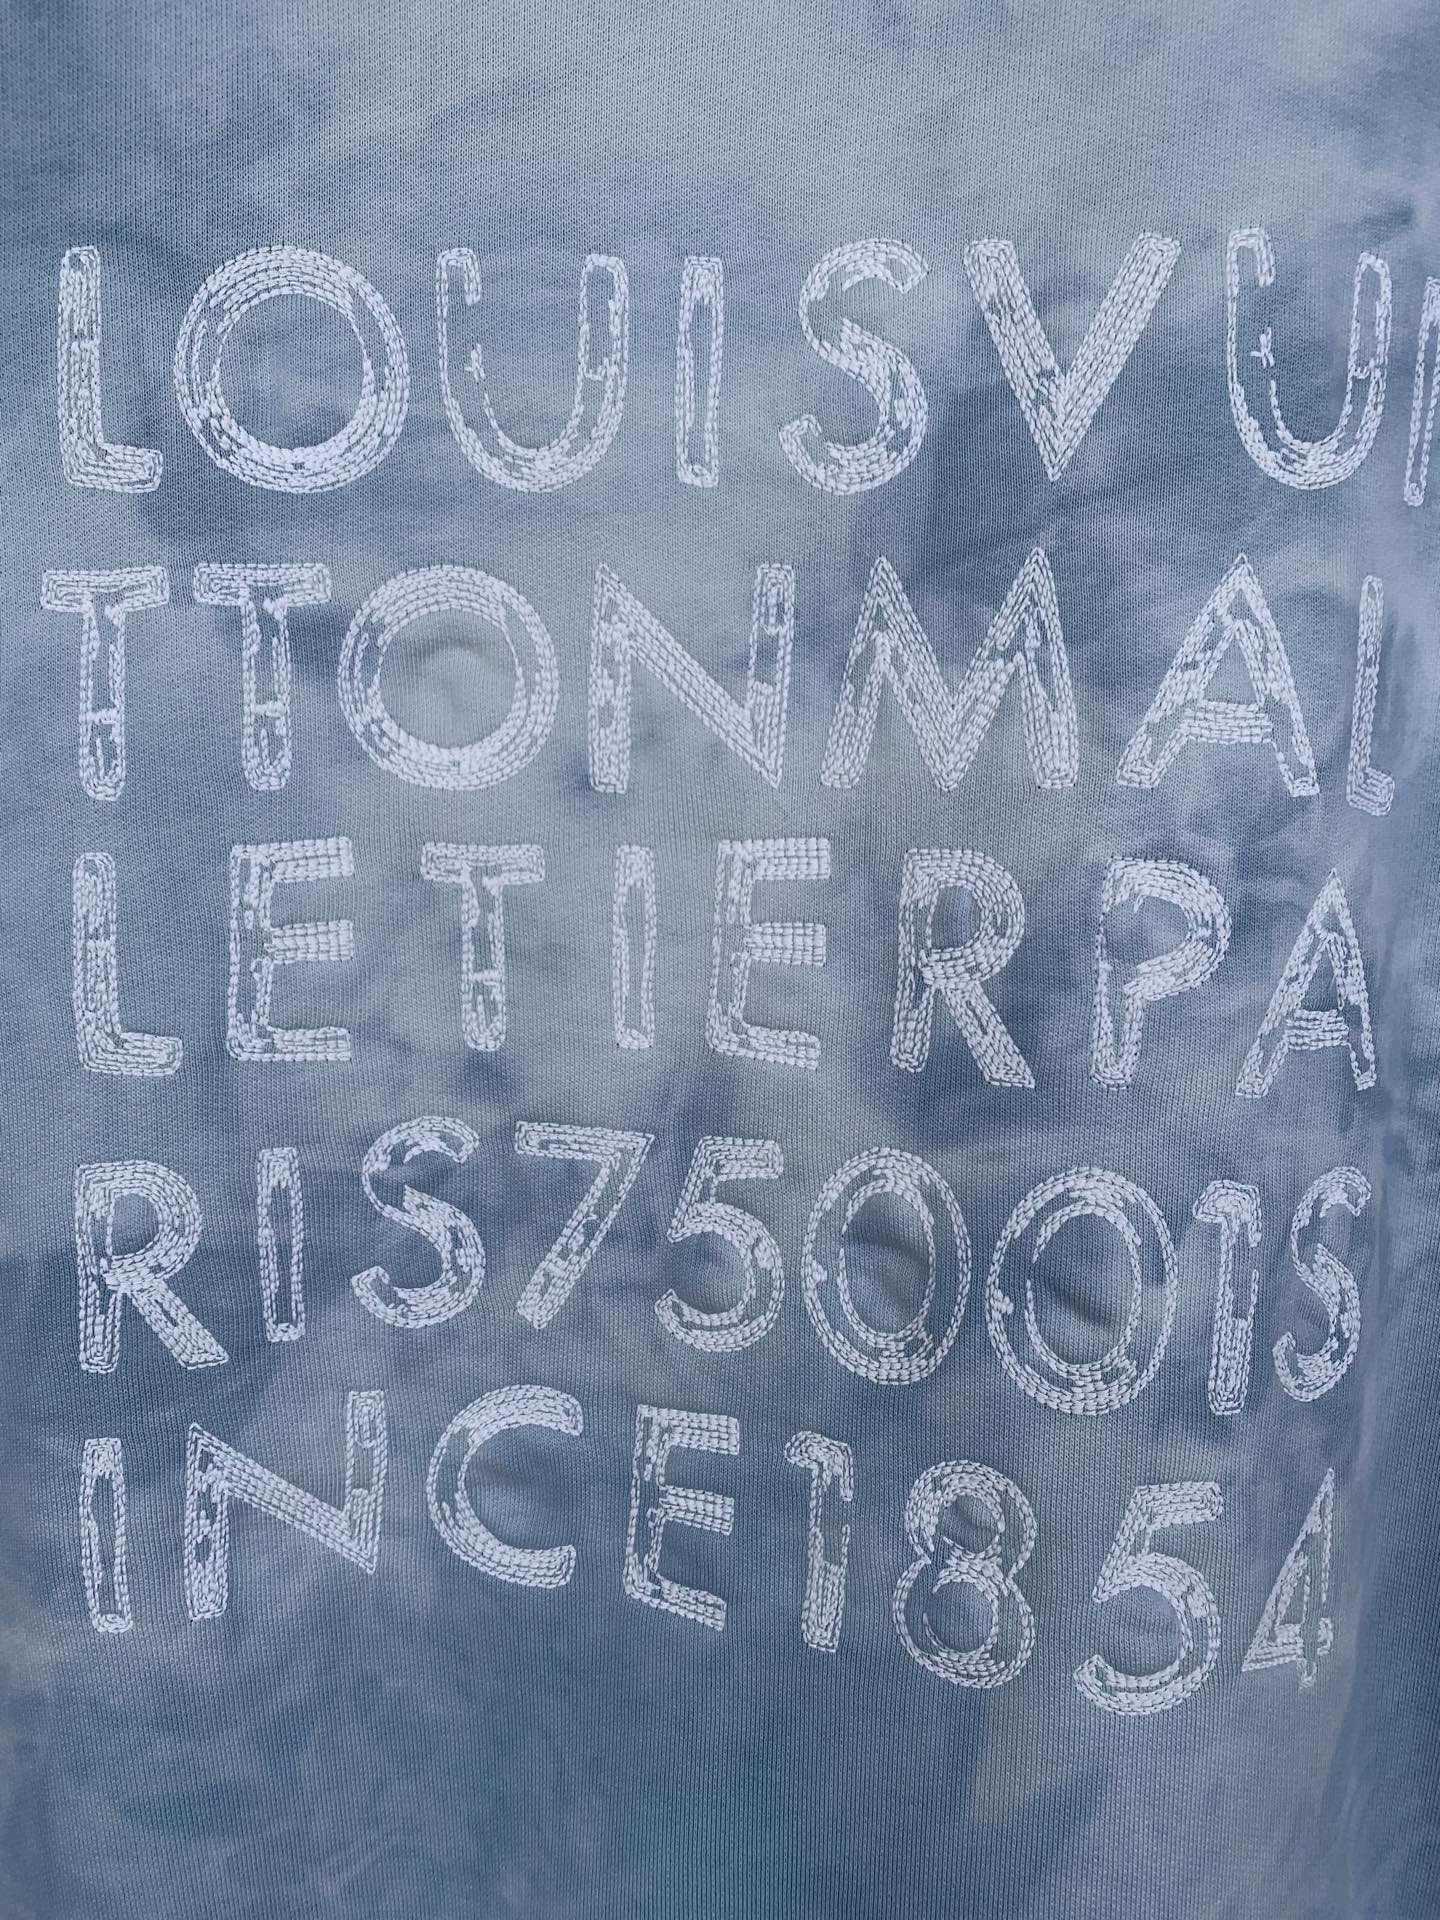 LOUISVUI
TTONMAL
LETIERPA
RIS75001S
INCE1854